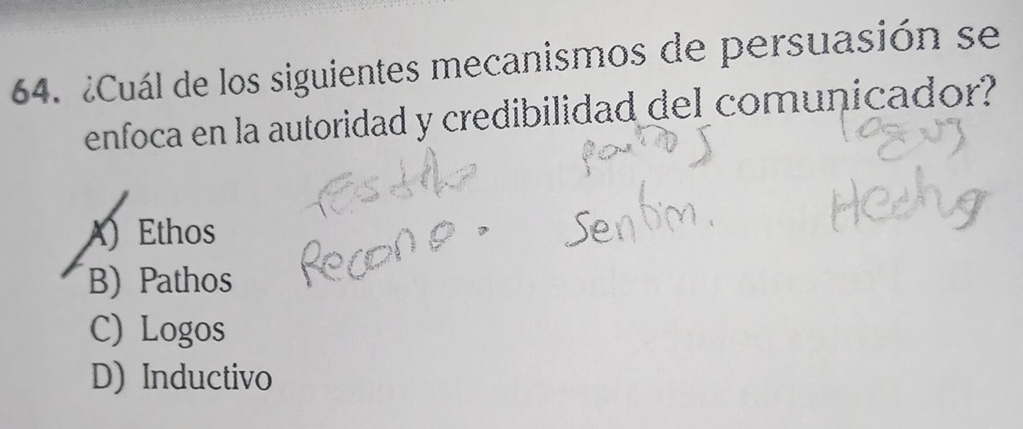 64. ¿Cuál de los siguientes mecanismos de persuasión se
enfoca en la autoridad y credibilidad del comunicador?
Sentim.
A) Ethos
B) Pathos
C) Logos
D) Inductivo